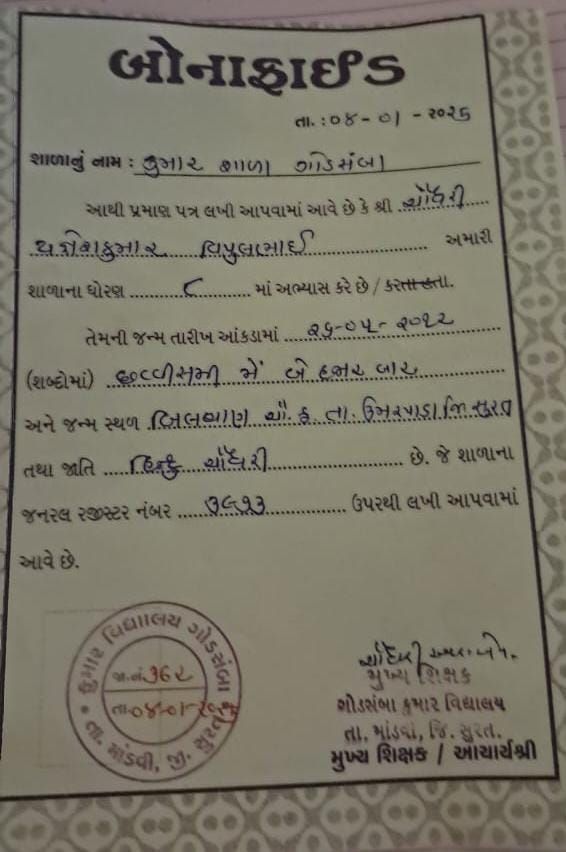 બોનાફાઈડ
તા. : ૦૪-૦૧-૨૦૨૬
શાળાનું નામ : કુમાર શાળા ગોડસંબા
આથી પ્રમાણ પત્ર લખી આપવામાં આવે છે કે શ્રી ચૌધરી
યજ્ઞેશકુમાર વિપુલભાઈ અમારી
શાળાના ધોરણ ૮ માં અભ્યાસ કરે છે / કરતા હતા.
તેમની જન્મ તારીખ આંકડામાં ૨૬-૦૫-૨૦૧૨
(શબ્દોમાં) છવ્વીસમી મે બે હજાર બાર
અને જન્મ સ્થળ બિલવાણ ચૌ. ફ. તા. ઉમરપાડા જિ. સુરત
તથા જાતિ હિન્દુ ચૌધરી છે. જે શાળાના
જનરલ રજીસ્ટર નંબર ૭૬૧૩ ઉપરથી લખી આપવામાં
આવે છે.
કુમાર વિદ્યાાલય ગોડસંબા
જા.નં ૩૬૨
તા ૦૪-૦૧-૨૦૨૬
તા. માંડવી, જી. સુરત
ચૌધરી
મુખ્ય શિક્ષક
ગોડસંબા કુમાર વિદ્યાલય
તા. માંડવી, જિ. સુરત.
મુખ્ય શિક્ષક / આચાર્યશ્રી